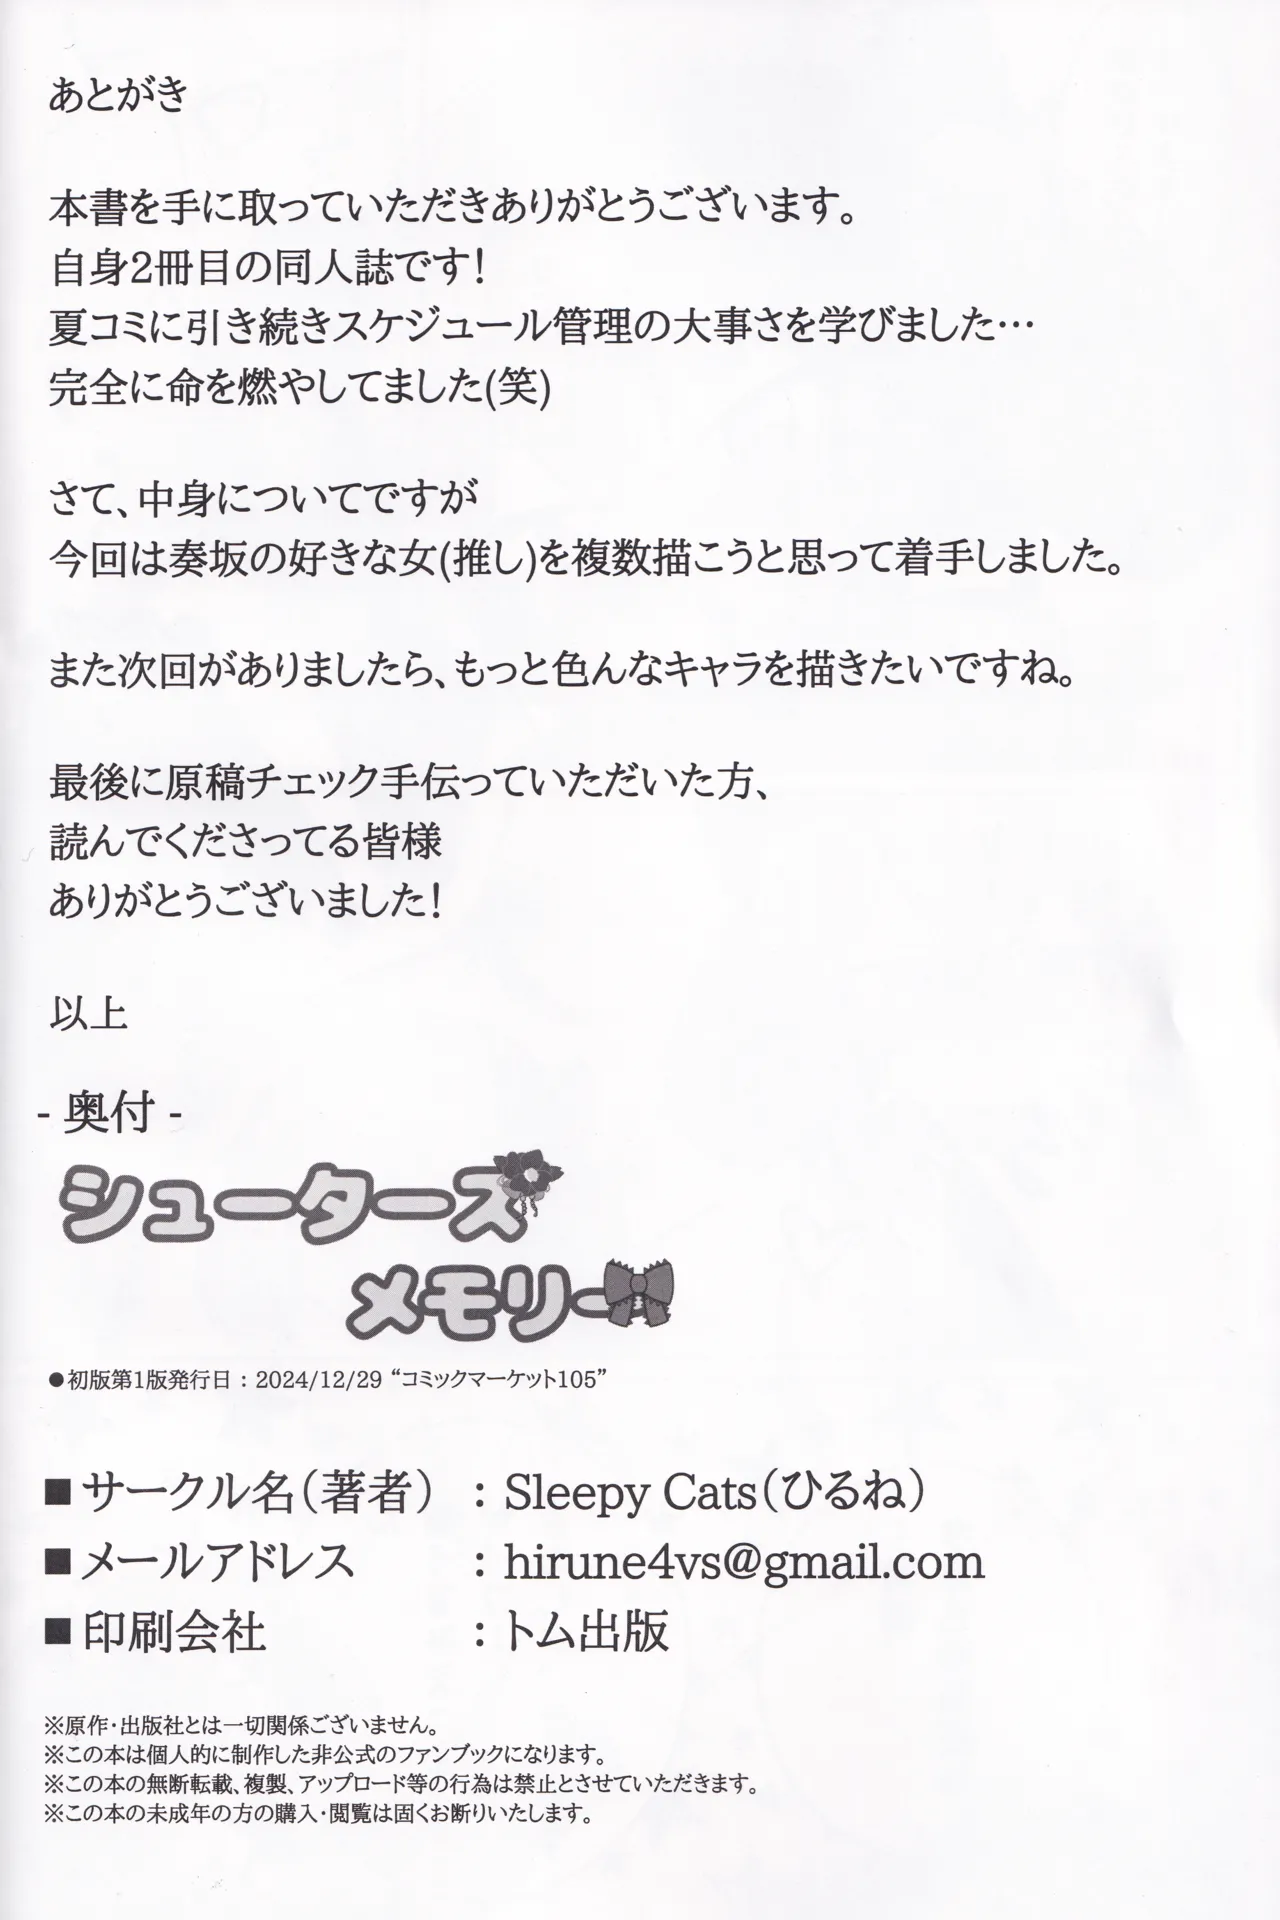 あとがき
本書を手に取っていただきありがとうございます。
自身2冊目の同人誌です！
夏コミに引き続きスケジュール管理の大事さを学びました…
完全に命を燃やしてました(笑)
さて、中身についてですが
今回は奏坂の好きな女(推し)を複数描こうと思って着手しました。
また次回がありましたら、もっと色んなキャラを描きたいですね。
最後に原稿チェック手伝っていただいた方、
読んでくださってる皆様
ありがとうございました！
以上
- 奥付 -
シューターズ
メモリー
●初版第1版発行日：2024/12/29 “コミックマーケット105”
■サークル名（著者）：Sleepy Cats（ひるね）
■メールアドレス：hirune4vs@gmail.com
■印刷会社：トム出版
※原作・出版社とは一切関係ございません。
※この本は個人的に制作した非公式のファンブックになります。
※この本の無断転載、複製、アップロード等の行為は禁止とさせていただきます。
※この本の未成年の方の購入・閲覧は固くお断りいたします。